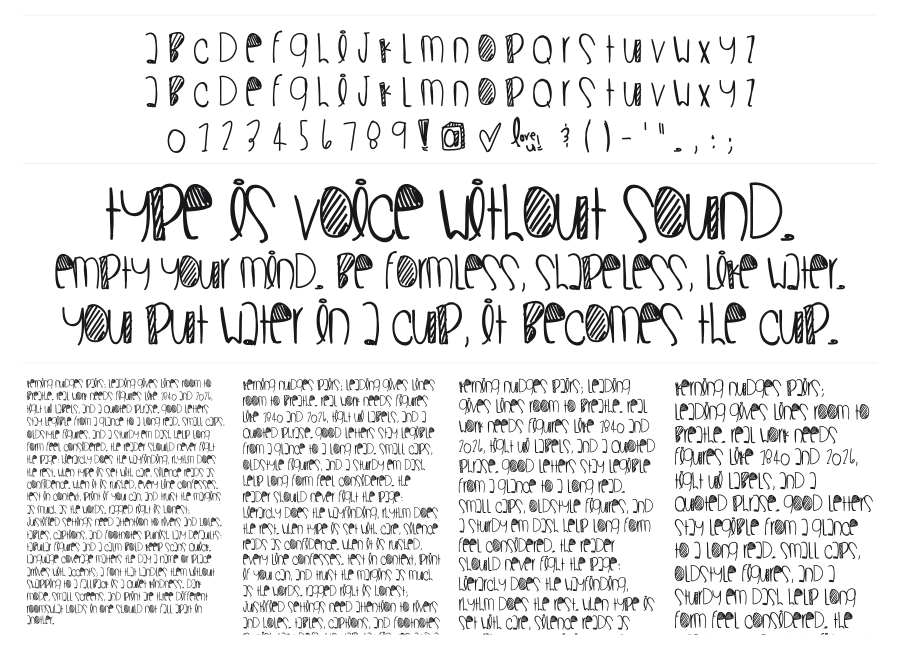 aBcDefghiJkLmnOPQrStuvwxyz
aBcDefghiJkLmnOPQrStuvwxyz
0123456789! @ ✓ love u! & ( ) - ' " . , : ;
type is voice without sound.
empty your mind. Be formless, shapeless, like water.
you put water in a cup, it becomes the cup.
kerning nudges pairs; leading gives lines room to
breathe. real work needs figures like 1840 and 2026,
tight ui labels, and a quoted phrase. good letters
stay legible from a glance to a long read. small caps,
oldstyle figures, and a sturdy em dash help long
form feel considered. the reader should never fight
the page: hierarchy does the wayfinding, rhythm does
the rest. when type is set with care, silence reads as
confidence. when it is rushed, every line confesses.
test in context, print if you can, and trust the margins
as much as the words. ragged right is honest;
justified settings need attention to rivers and holes.
tables, captions, and footnotes punish lazy defaults;
tabular figures and a calm bold keep scans quick.
language coverage matters the day a name or place
arrives with accents; a font that handles them without
swapping to a fallback is a quiet kindness. dark
mode, small screens, and print are three different
rooms; what holds in one should not fall apart in
another.
kerning nudges pairs; leading gives lines
room to breathe. real work needs figures
like 1840 and 2026, tight ui labels, and a
quoted phrase. good letters stay legible
from a glance to a long read. small caps,
oldstyle figures, and a sturdy em dash
help long form feel considered. the
reader should never fight the page:
hierarchy does the wayfinding, rhythm does
the rest. when type is set with care, silence
reads as confidence. when it is rushed,
every line confesses. test in context, print
if you can, and trust the margins as much
as the words. ragged right is honest;
justified settings need attention to rivers
and holes. tables, captions, and footnotes
kerning nudges pairs; leading
gives lines room to breathe. real
work needs figures like 1840 and
2026, tight ui labels, and a quoted
phrase. good letters stay legible
from a glance to a long read.
small caps, oldstyle figures, and
a sturdy em dash help long form
feel considered. the reader
should never fight the page:
hierarchy does the wayfinding,
rhythm does the rest. when type is
set with care, silence reads as
kerning nudges pairs;
leading gives lines room to
breathe. real work needs
figures like 1840 and 2026,
tight ui labels, and a
quoted phrase. good letters
stay legible from a glance
to a long read. small caps,
oldstyle figures, and a
sturdy em dash help long
form feel considered. the